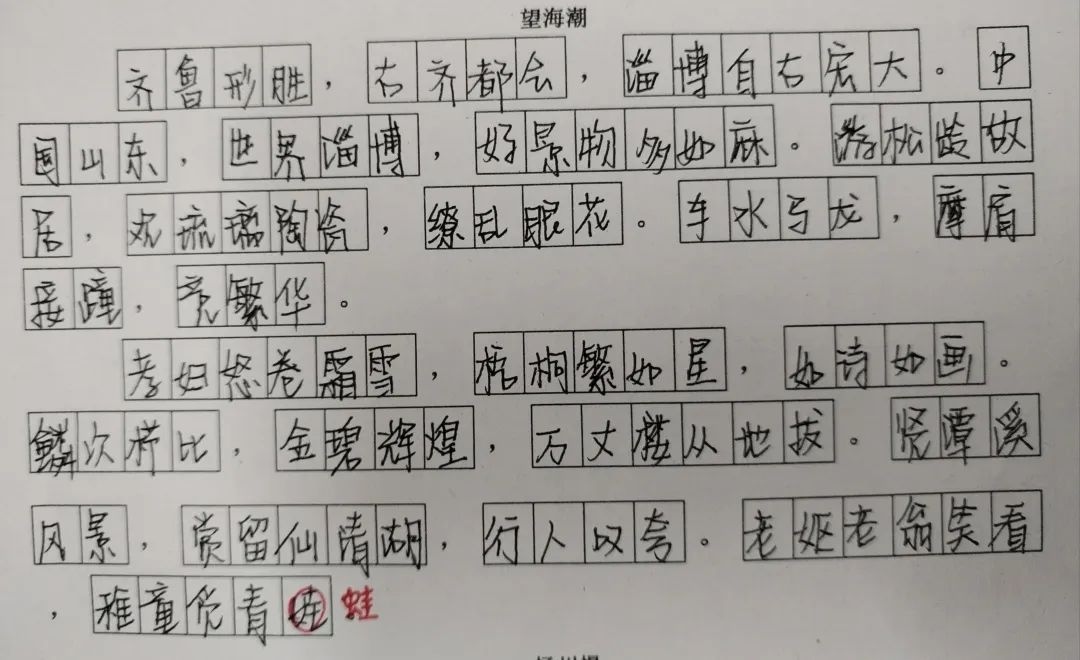 望海潮
齐鲁形胜，右齐都会，淄博自古宏大。中
国山东，世界淄博，好景物多如麻。游松龄故
居，观琉璃陶瓷，缭乱眼花。车水马龙，摩肩
接踵，竞繁华。
孝妇怒卷霜雪，梧桐繁如星，如诗如画。
鳞次栉比，金碧辉煌，万丈楼从地拔。贤潭溪
风景，赏留仙清湖，行人叹夸。老妪老翁笑看
，稚童觉青娃蛙